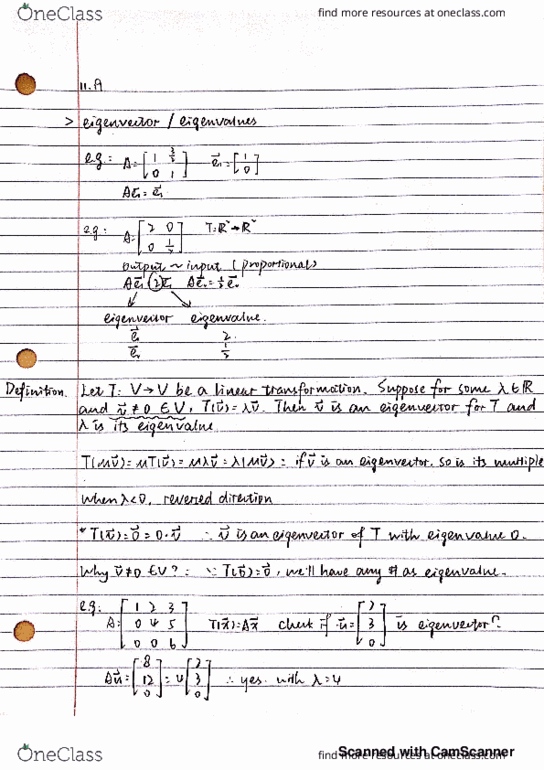 OneClass
find more resources at oneclass.com
11.A
> eigenvector / eigenvalues
e.g: A = [1 3/2; 0 1] e⃗₁ = [1; 0]
Ae⃗₁ = e⃗₁
e.g: A = [2 0; 0 1/3] T: R² → R²
output ~ input (proportional)
eigenvector eigenvalue.
e⃗₁ 2
Definition. Let T: V → V be a linear transformation. Suppose for some λ ∈ ℝ
and v⃗ ≠ 0 ∈ V, T(v⃗) = λv⃗. Then v⃗ is an eigenvector for T and
λ is its eigenvalue.
T(μv⃗) = μT(v⃗) = μλv⃗ = λ(μv⃗) : if v⃗ is an eigenvector, so is its multiple
when λ<0, revered direction
* T(v⃗) = 0⃗ = 0·v⃗ ∴ v⃗ is an eigenvector of T with eigenvalue 0.
Why v⃗ ≠ 0 ∈ V? : ∵ T(0⃗) = 0⃗, we'll have any # as eigenvalue.
e.g: A = [1 2 3; 0 4 5; 0 0 6] T(x⃗) = Ax⃗ check if u⃗ = [2; 3; 0] is eigenvector?
Au⃗ = [8; 12; 0] = 4 [2; 3; 0] ∴ yes. with λ = 4
Scanned with CamScanner
OneClass
find more resources at oneclass.com